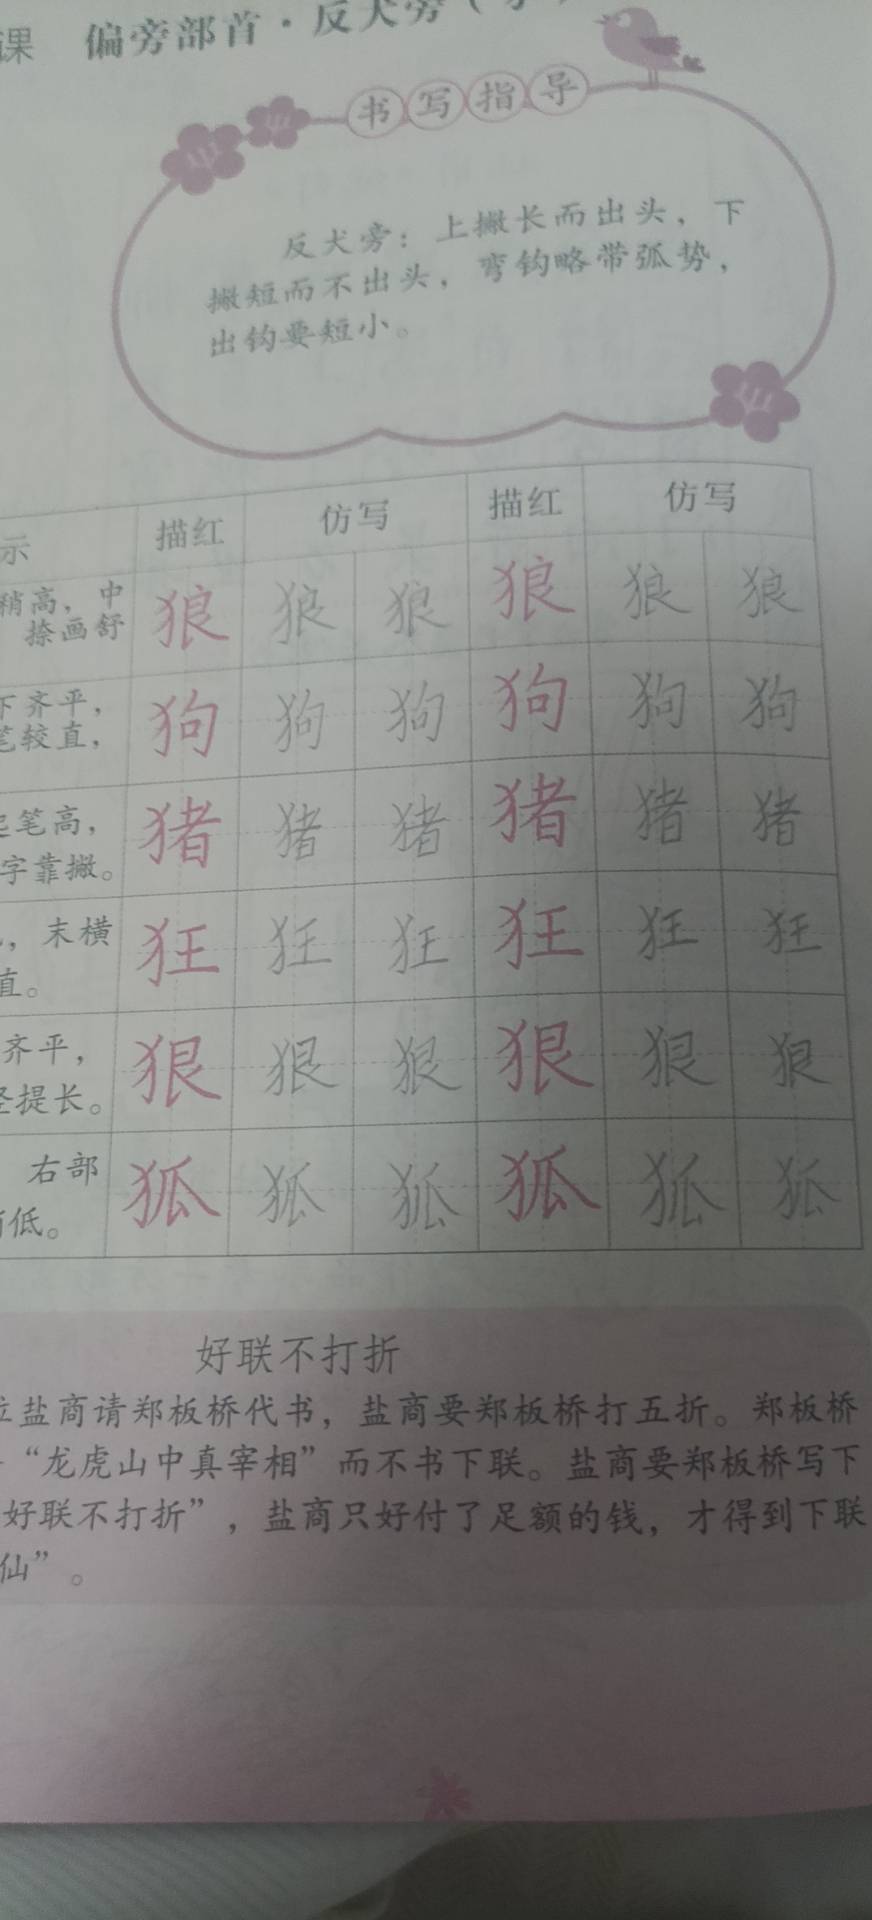 课 偏旁部首·反犬旁（犭）
书写指导
反犬旁：上撇长而出头，下
撇短而不出头，弯钩略带弧势，
出钩要短小。
示 描红 仿写 描红 仿写
稍高，中
捺画舒
狼 狼 狼 狼 狼 狼
下齐平，
笔较直，
狗 狗 狗 狗 狗 狗
起笔高，
字靠撇。
猪 猪 猪 猪 猪 猪
，末横
直。
狂 狂 狂 狂 狂 狂
齐平，
竖提长。
狠 狠 狠 狠 狠 狠
右部
低。
狐 狐 狐 狐 狐 狐
好联不打折
盐商请郑板桥代书，盐商要郑板桥打五折。郑板桥
“龙虎山中真宰相”而不书下联。盐商要郑板桥写下
好联不打折”，盐商只好付了足额的钱，才得到下联
仙”。